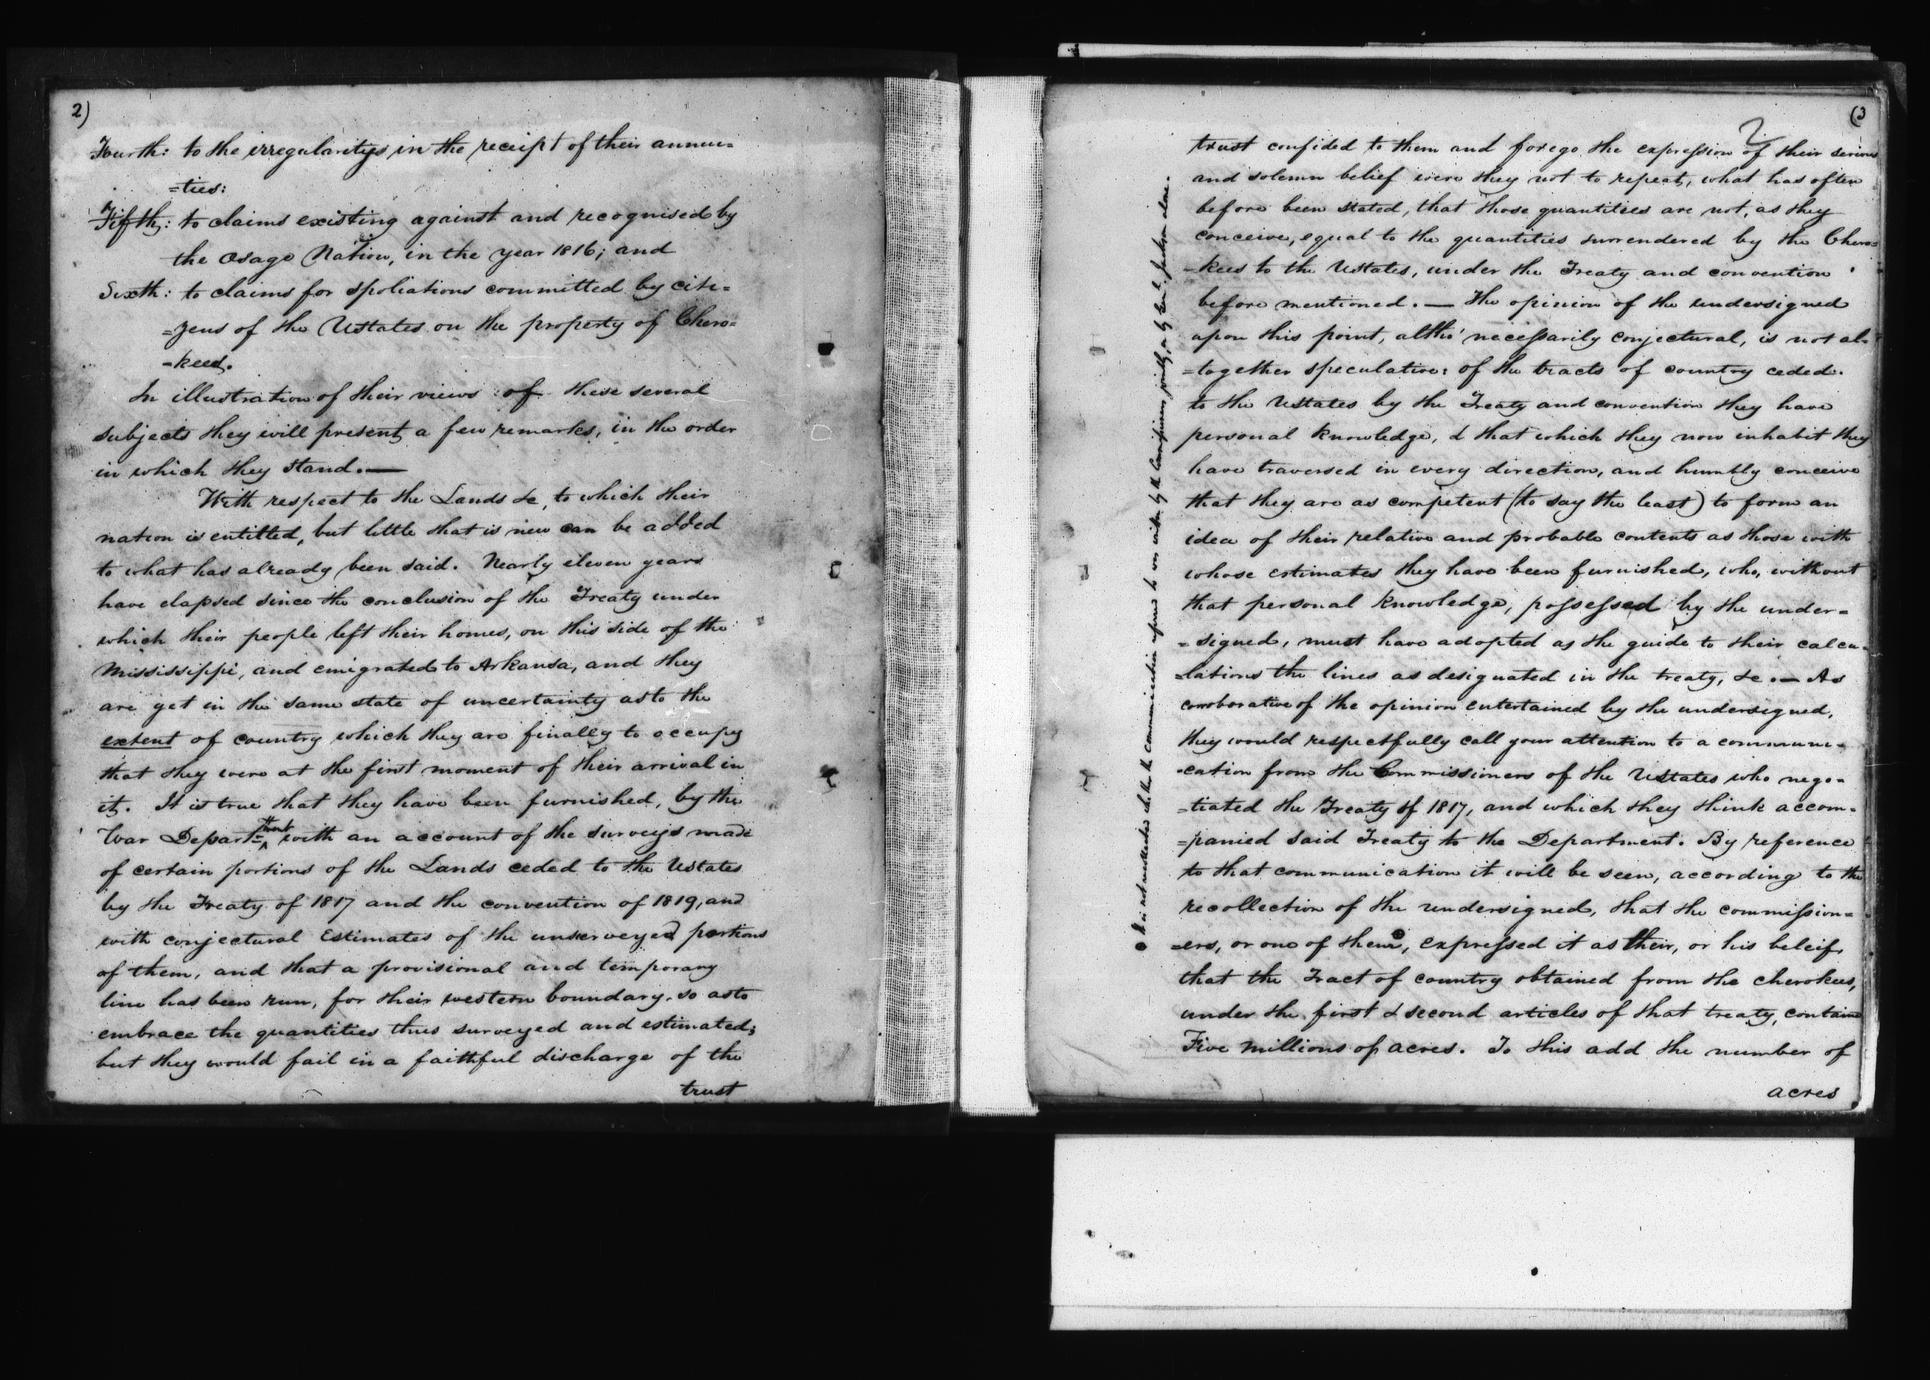 2)
Fourth: to the irregularitys in the receipt of their annui=
=ties:
Fifth: to claims existing against and recognised by
the Osage Nation, in the year 1816; and
Sixth: to claims for spoliations committed by citi=
=zens of the Ustates on the property of Chero=
=kees.
In illustration of their views of these several
subjects they will present a few remarks, in the order
in which they stand. —
With respect to the Lands &c, to which their
nation is entitled, but little that is new can be added
to what has already been said. Nearly eleven years
have elapsed since the conclusion of the Treaty under
which their people left their homes, on this side of the
Mississippi, and emigrated to Arkansa, and they
are yet in the same state of uncertainty as to the
extent of country which they are finally to occupy
that they were at the first moment of their arrival in
it. It is true that they have been furnished, by the
War Department with an account of the surveys made
of certain portions of the Lands ceded to the Ustates
by the Treaty of 1817 and the convention of 1819, and
with conjectural Estimates of the unserveyed portions
of them, and that a provisional and temporary
line has been run, for their western boundary, so as to
embrace the quantities thus surveyed and estimated;
but they would fail in a faithful discharge of the
trust
(3
trust confided to them and forego the expression of their serious
and solemn belief were they not to repeat, what has often
before been stated, that those quantities are not, as they
conceive, equal to the quantities surrendered by the Chero=
=kees to the Ustates, under the Treaty and convention
before mentioned. — The opinion of the undersigned
upon this point, altho' necessarily conjectural, is not al=
=together speculative: of the tracts of country ceded
to the Ustates by the Treaty and convention they have
personal knowledge, & that which they now inhabit they
have traversed in every direction, and humbly conceive
that they are as competent (to say the least) to form an
idea of their relative and probable contents as those with
whose estimates they have been furnished, who, without
that personal knowledge, possessed by the under=
=signed, must have adopted as the guide to their calcu=
=lations the lines as designated in the treaty, &c. — As
corroborative of the opinion entertained by the undersigned,
they would respectfully call your attention to a communi=
=cation from the Commissioners of the Ustates who nego=
=tiated the Treaty of 1817, and which they think accom=
=panied said Treaty to the Department. By reference
to that communication it will be seen, according to the
recollection of the undersigned, that the commission=
=ers, or one of them, expressed it as their, or his beleif,
that the Tract of country obtained from the cherokees,
under the first & second articles of that treaty, contains
Five millions of acres. To this add the number of
acres
It is not recollected whether the communication refered to was written by the Commissioners jointly, or by Genl. Jackson alone.